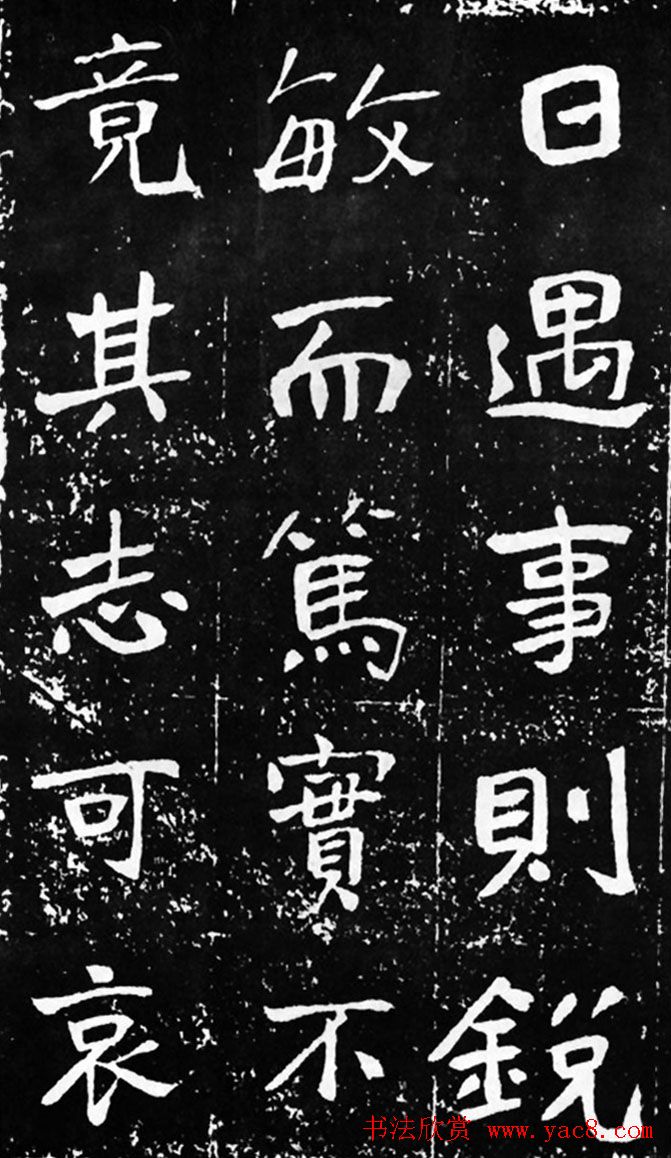 日遇事則鋭
敏而篤實不
竟其志可哀
书法欣赏 www.yac8.com